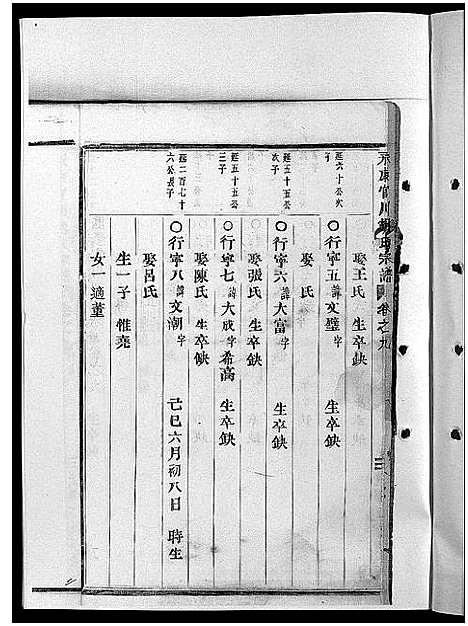 永康官川胡氏宗譜 卷之九
三
延六十公次子
〇行寧五 諱文璧字 生卒缺
娶王氏 生卒缺
延五十五公次子
〇行寧六 諱大富字 生卒缺
娶 氏
延五十五公三子
〇行寧七 諱大成字希高 生卒缺
娶張氏 生卒缺
延二百七十六公長子
〇行寧八 諱文潮字 己巳六月初八日 時生
娶陳氏 生卒缺
娶呂氏
生一子 惟堯
女一適董